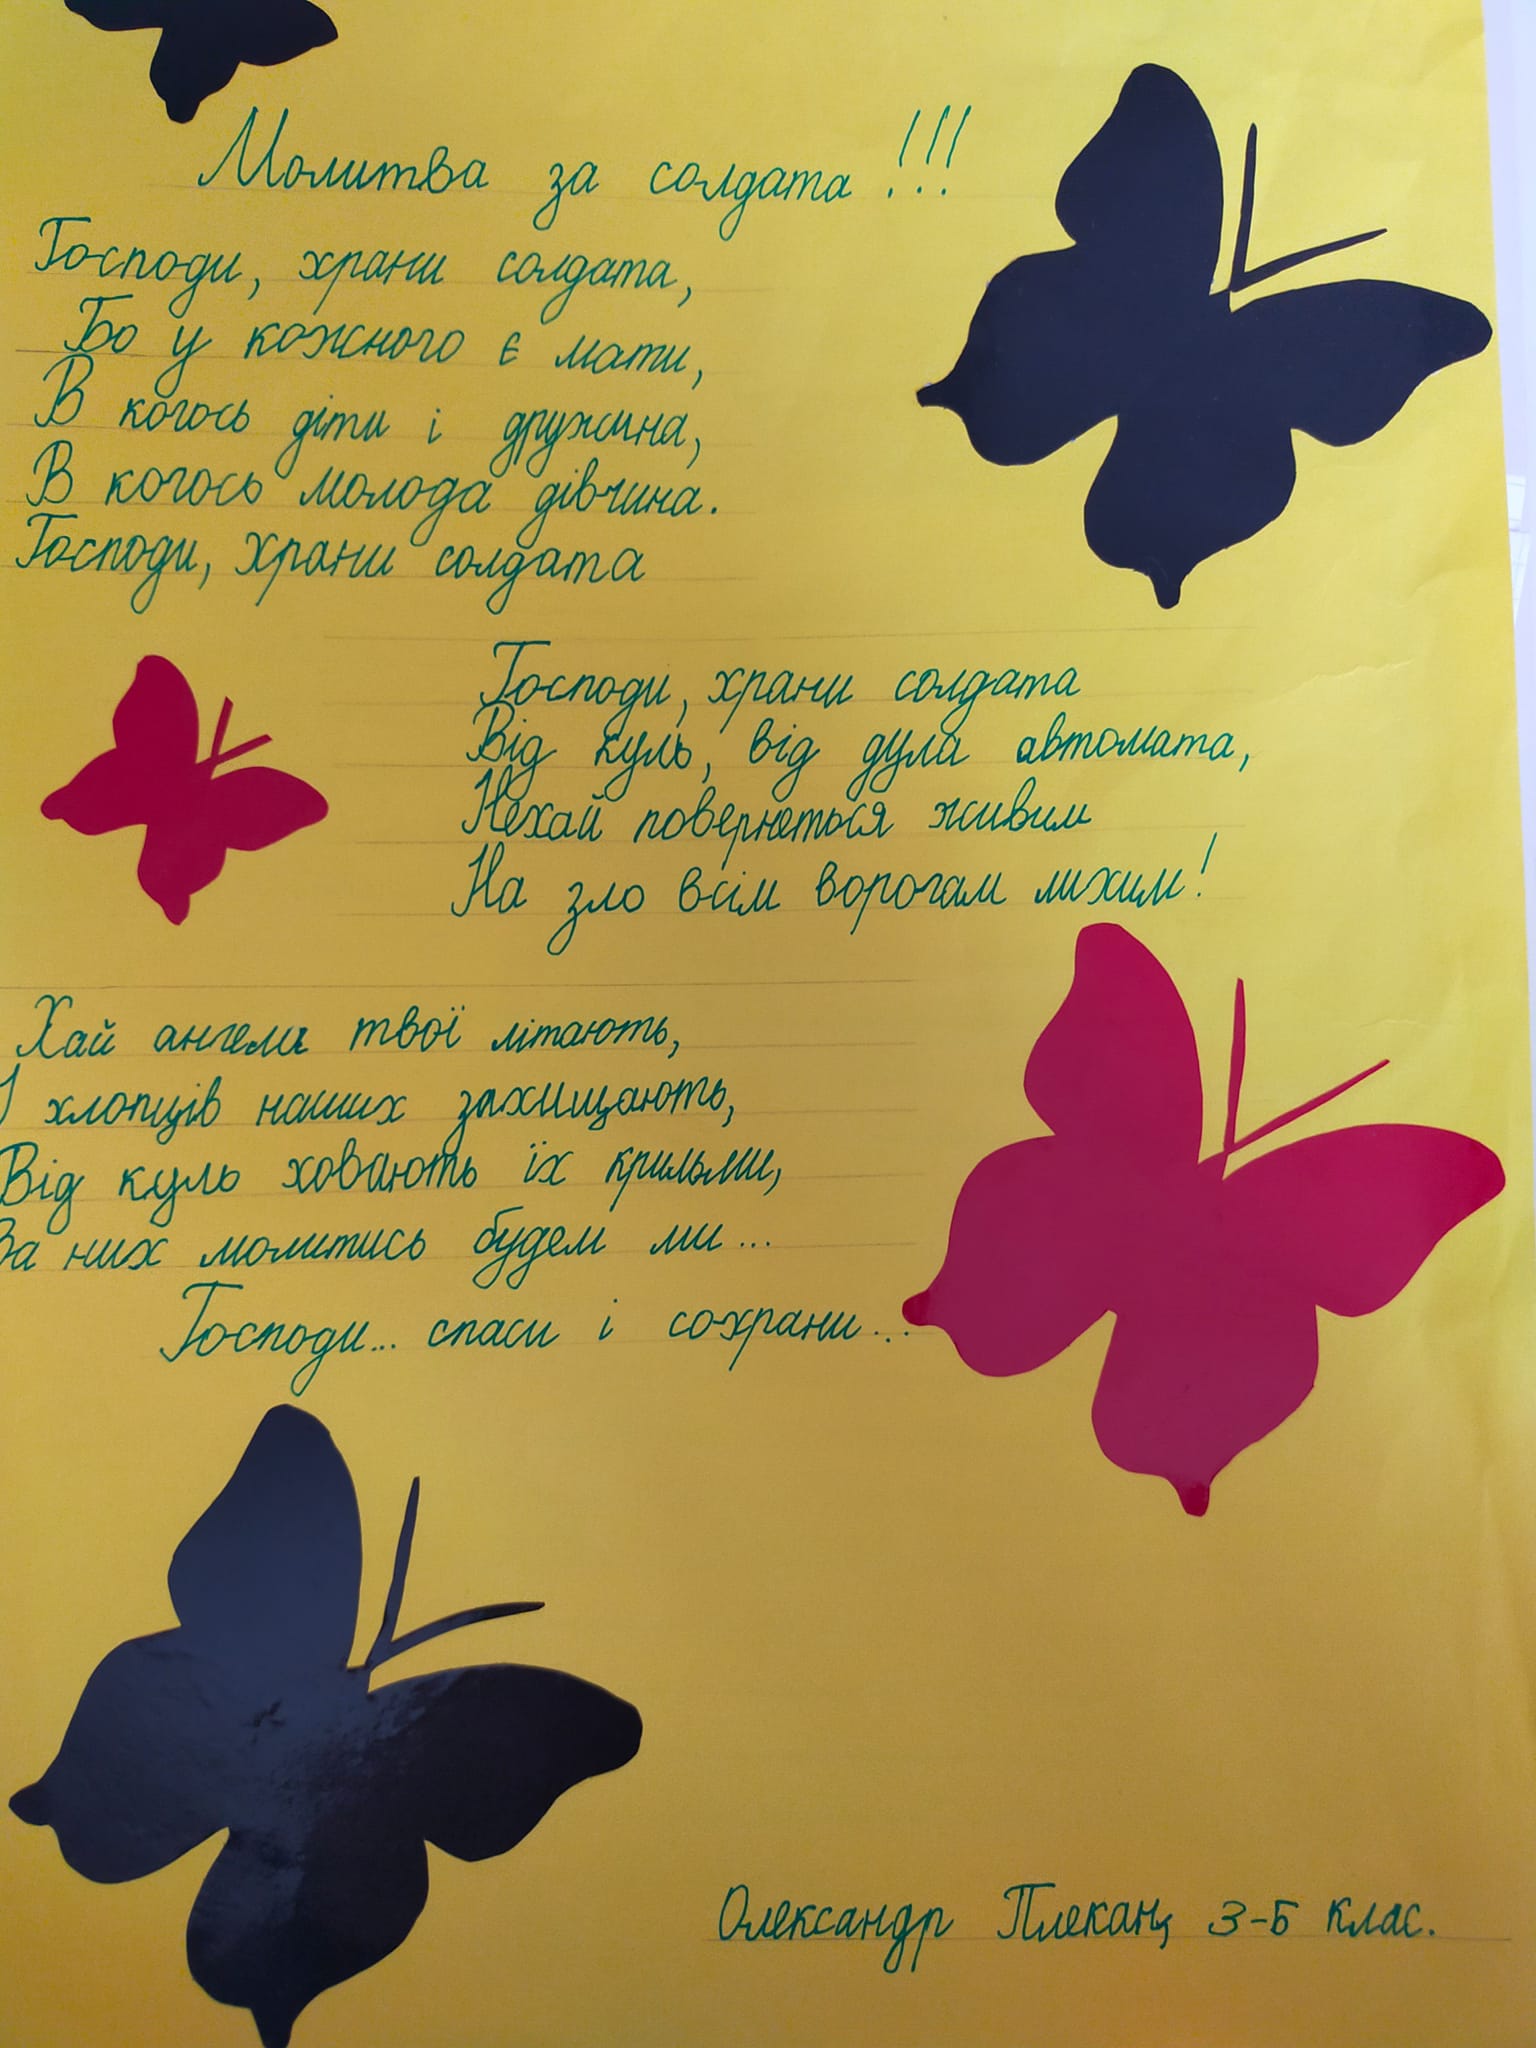 Молитва за солдата!!!
Господи, храни солдата,
Бо у кожного є мати,
В когось діти і дружина,
В когось молода дівчина.
Господи, храни солдата
Господи, храни солдата
Від куль, від дула автомата,
Нехай повернеться живим
На зло всім ворогам лихим!
Хай ангели твої літають,
І хлопців наших захищають,
Від куль ховають їх крильми,
За них молитись будем ми...
Господи... спаси і сохрани...
Олександр Плекан, 3-Б клас.